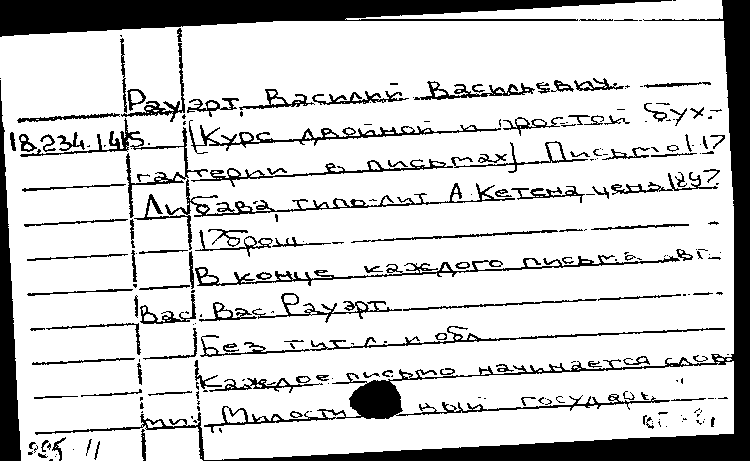 Рауэрт, Василий Васильевич.
18.234.1.415. [Курс двойной и простой бух-
галтерии в письмах] Письмо 1-17
Либава, типо-лит. А. Кетена, ценз. 1897
17 брош
В конце каждого письма авт.
Вас. Вас. Рауэрт.
Без тит. л. и обл
Каждое письмо начинается слова
ми: „Милостивый государь"